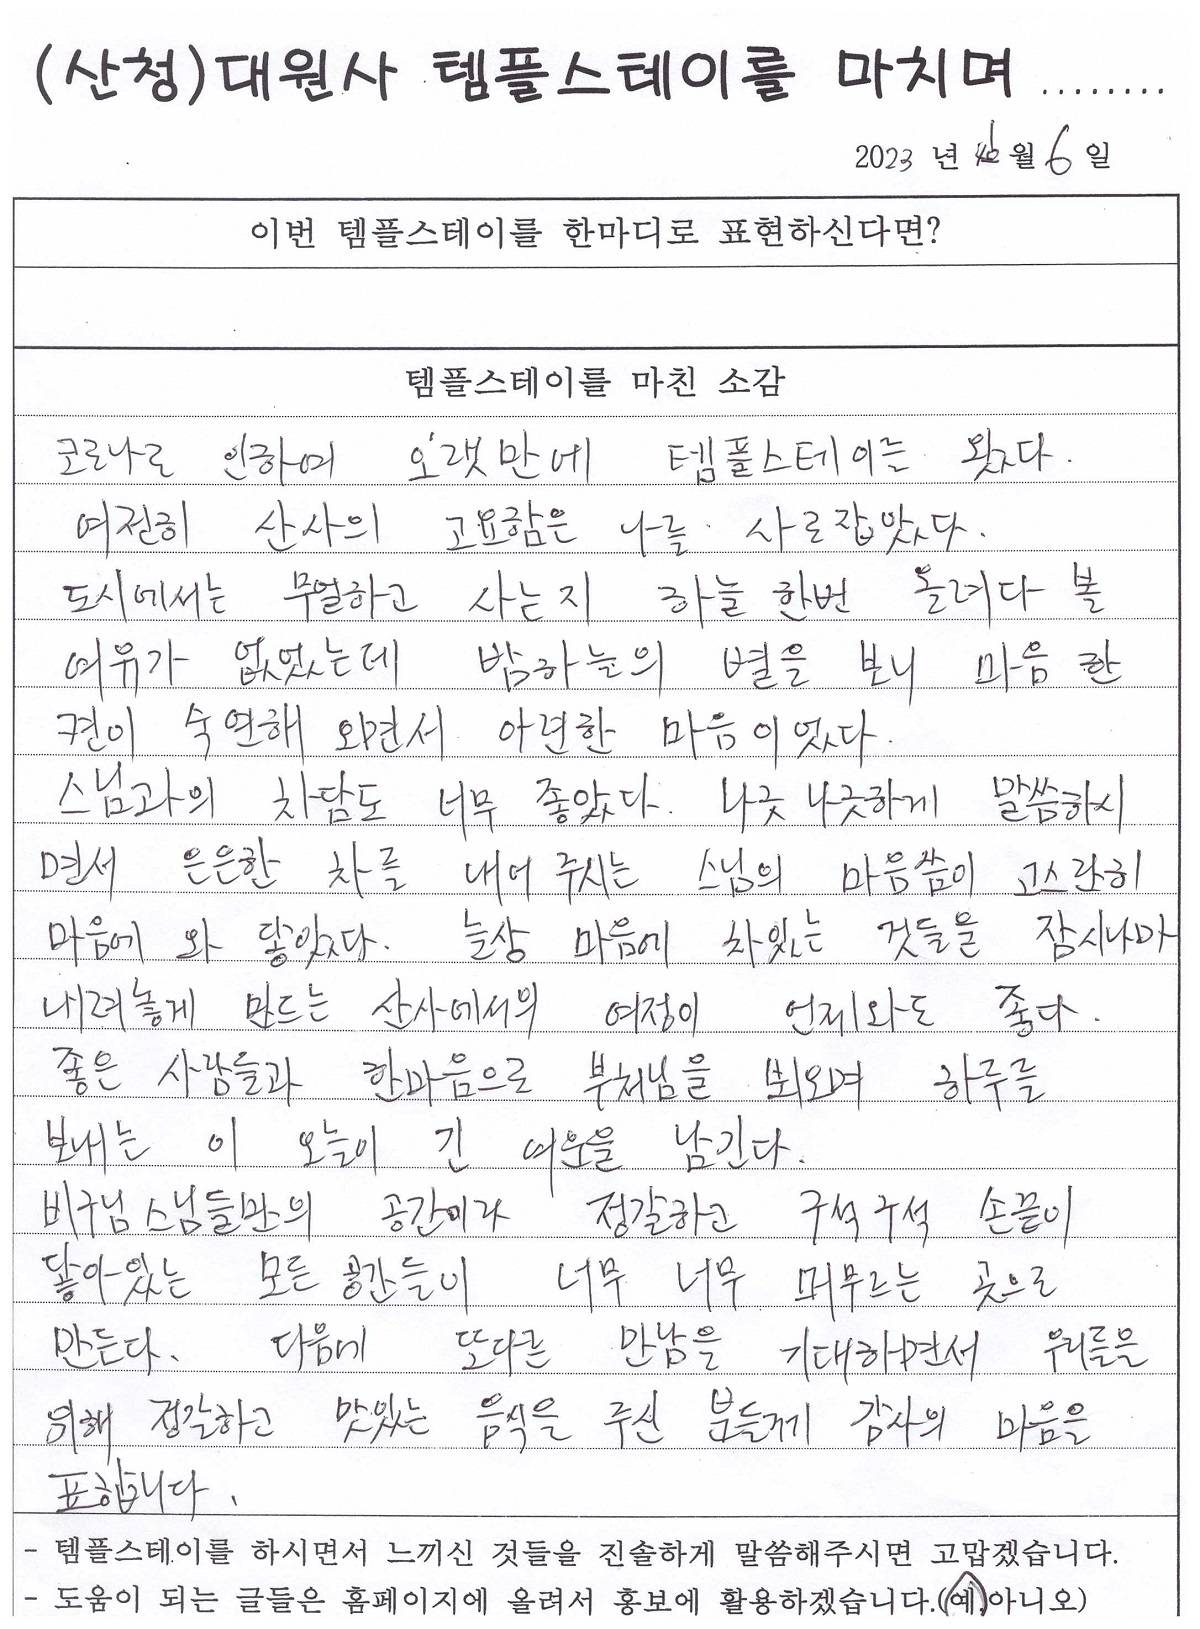 (산청)대원사 템플스테이를 마치며........
2023 년 월 6 일
이번 템플스테이를 한마디로 표현하신다면?
템플스테이를 마친 소감
코로나로 인하여 오랫만에 템플스테이를 왔다.
여전히 산사의 고요함은 나를 사로잡았다.
도시에서는 무얼하고 사는지 하늘 한번 올려다 볼
여유가 없었는데 밤하늘의 별을 보니 마음 한
켠이 숙연해 오면서 아련한 마음이었다.
스님과의 차담도 너무 좋았다. 나긋나긋하게 말씀하시
면서 은은한 차를 내어 주시는 스님의 마음씀이 고스란히
마음에 와 닿았다. 늘상 마음에 차있는 것들을 잠시나마
내려놓게 만드는 산사에서의 여정이 언제와도 좋다.
좋은 사람들과 한마음으로 부처님을 뵈오며 하루를
보내는 이 오늘이 긴 여운을 남긴다.
비구님 스님들만의 공간이라 정갈하고 구석구석 손끝이
닿아있는 모든 공간들이 너무 너무 머무르는 곳으로
만든다. 다음에 또다른 만남을 기대하면서 우리들을
위해 정갈하고 맛있는 음식을 주신 분들께 감사의 마음을
표합니다.
- 템플스테이를 하시면서 느끼신 것들을 진솔하게 말씀해주시면 고맙겠습니다.
- 도움이 되는 글들은 홈페이지에 올려서 홍보에 활용하겠습니다.(예,아니오)